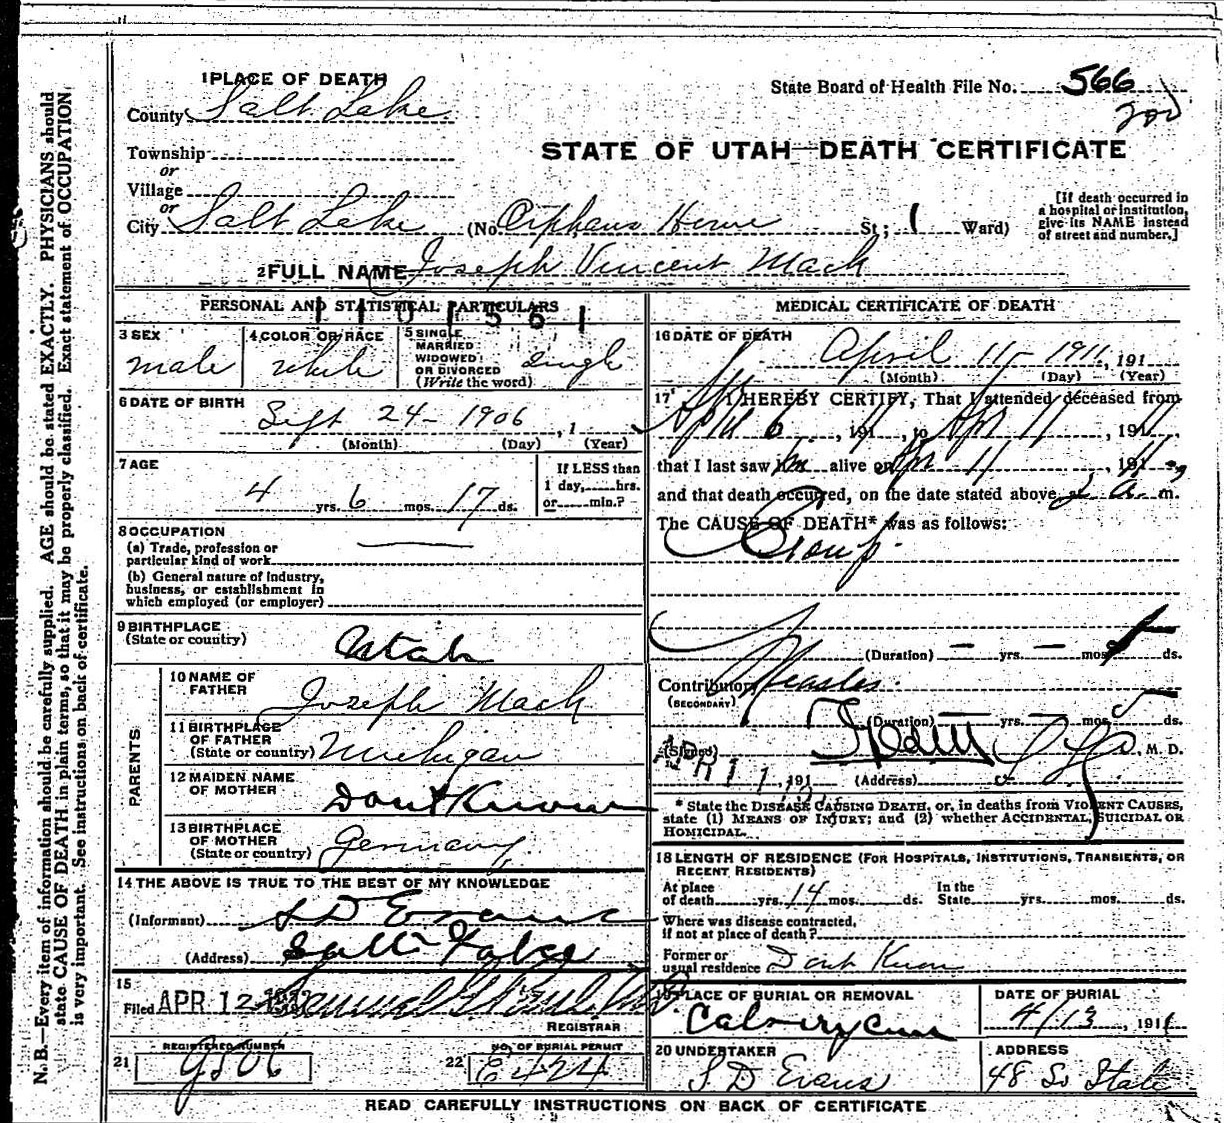 1 PLACE OF DEATH
State Board of Health File No. 566
200
County Salt Lake
STATE OF UTAH—DEATH CERTIFICATE
Township
or
Village
or
City Salt Lake (No. Orphans Home St; 1 Ward)
[If death occurred in a hospital or institution, give its NAME instead of street and number.]
2 FULL NAME Joseph Vincent Mack
PERSONAL AND STATISTICAL PARTICULARS
1101561
3 SEX
male
4 COLOR OR RACE
white
5 SINGLE
MARRIED
WIDOWED
OR DIVORCED
(Write the word)
single
6 DATE OF BIRTH
Sept 24 - 1906, 1
(Month) (Day) (Year)
7 AGE
4 yrs. 6 mos. 17 ds.
If LESS than
1 day, hrs.
or min.?
8 OCCUPATION
(a) Trade, profession or
particular kind of work
(b) General nature of industry,
business, or establishment in
which employed (or employer)
9 BIRTHPLACE
(State or country)
Utah
PARENTS
10 NAME OF
FATHER
Joseph Mack
11 BIRTHPLACE
OF FATHER
(State or country) Michigan
12 MAIDEN NAME
OF MOTHER
Dont Know
13 BIRTHPLACE
OF MOTHER
(State or country) Germany
14 THE ABOVE IS TRUE TO THE BEST OF MY KNOWLEDGE
(Informant) S D Evans
(Address) Salt Lake
15
Filed APR 12 1911
REGISTRAR
21
REGISTERED NUMBER
9806
22
NO. OF BURIAL PERMIT
E424
MEDICAL CERTIFICATE OF DEATH
16 DATE OF DEATH
April 11 - 1911, 191
(Month) (Day) (Year)
17 I HEREBY CERTIFY, That I attended deceased from
April 6, 1911, to Apr 11, 1911,
that I last saw him alive on Apr 11, 1911,
and that death occurred, on the date stated above, 2 a. m.
The CAUSE OF DEATH* was as follows:
Croup
(Duration) — yrs. — mos. ds.
Contributory Measles.
(SECONDARY)
(Duration) — yrs. — mos. 5 ds.
(Signed) M. D.
APR 11 191 (Address)
* State the DISEASE CAUSING DEATH, or, in deaths from VIOLENT CAUSES,
state (1) MEANS OF INJURY; and (2) whether ACCIDENTAL, SUICIDAL OR
HOMICIDAL.
18 LENGTH OF RESIDENCE (FOR HOSPITALS, INSTITUTIONS, TRANSIENTS, OR
RECENT RESIDENTS)
At place
of death yrs. 14 mos. ds.
In the
State yrs. mos. ds.
Where was disease contracted,
if not at place of death?
Former or
usual residence Dont Know
19 PLACE OF BURIAL OR REMOVAL
Calvary Cem
DATE OF BURIAL
4/13, 1911
20 UNDERTAKER
S D Evans
ADDRESS
48 So State
READ CAREFULLY INSTRUCTIONS ON BACK OF CERTIFICATE
N. B.—Every item of information should be carefully supplied. AGE should be stated EXACTLY. PHYSICIANS should
state CAUSE OF DEATH in plain terms, so that it may be properly classified. Exact statement of OCCUPATION
is very important. See instructions on back of certificate.